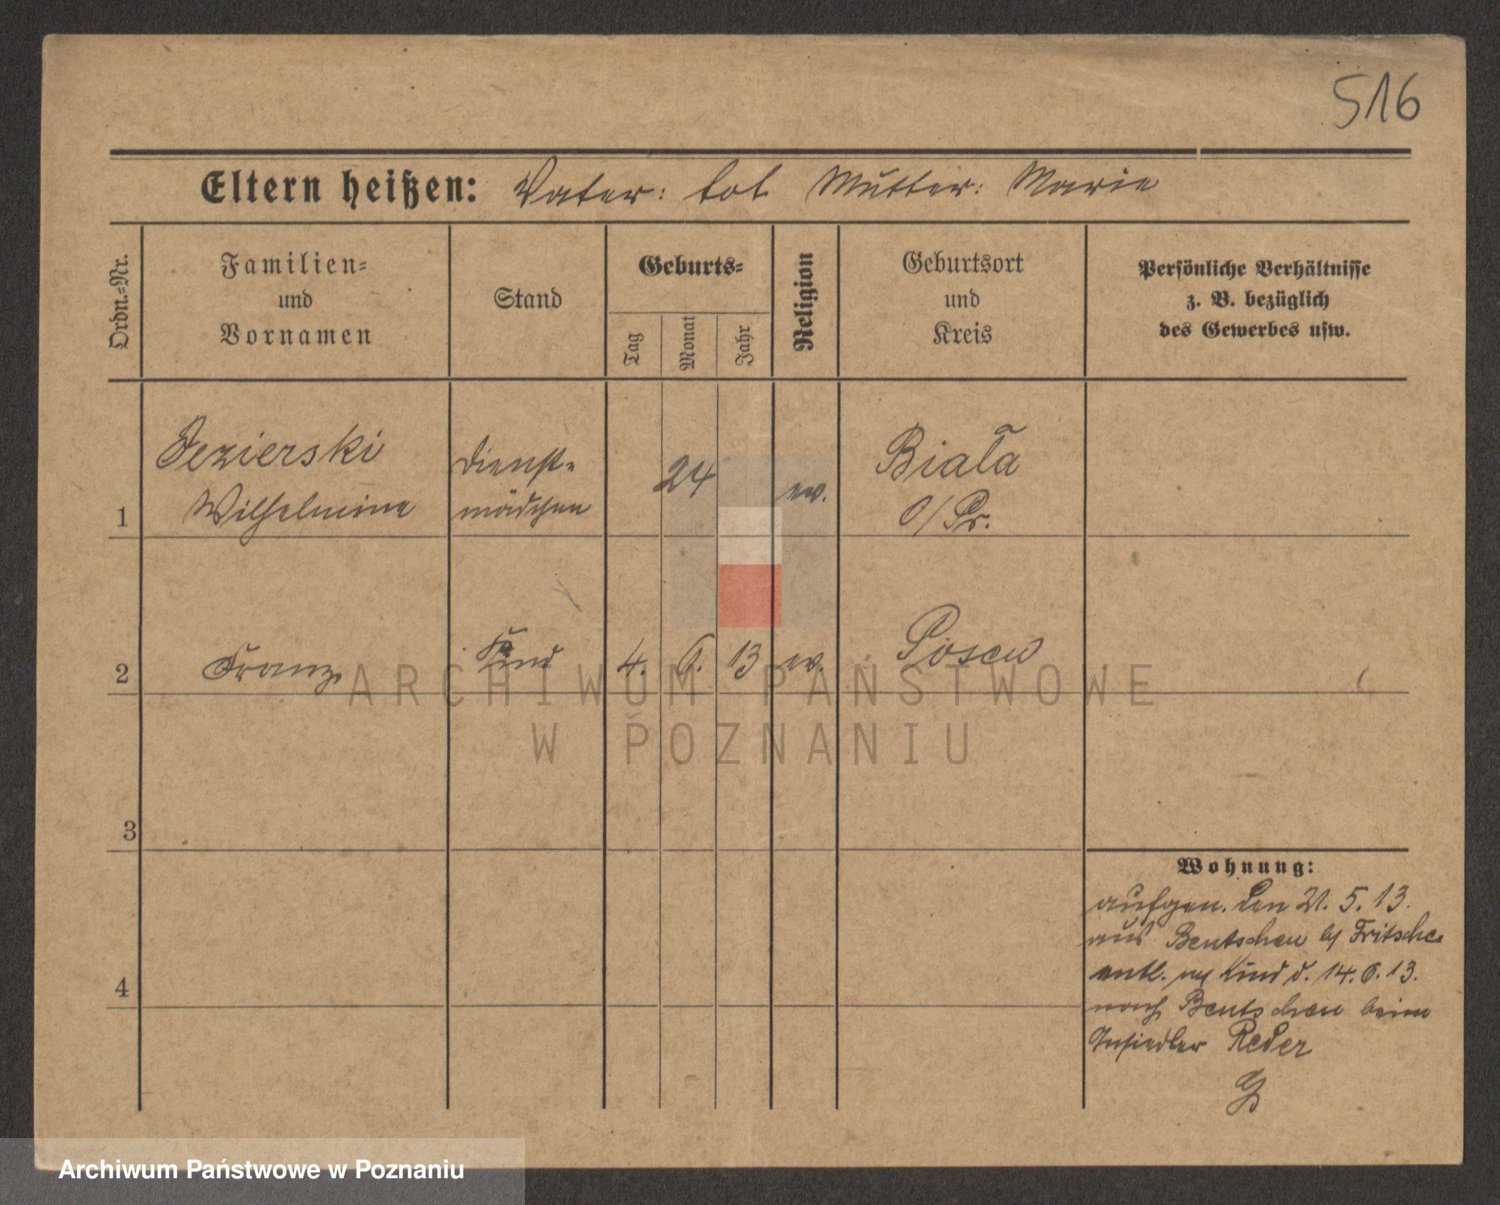 516
Eltern heißen: Vater: tot Mutter: Marie
Ordn.-Nr.
Familien-
und
Vornamen
Stand
Geburts-
Tag
Monat
Jahr
Religion
Geburtsort
und
Kreis
Persönliche Verhältnisse
z. B. bezüglich
des Gewerbes usw.
1
Jezierski
Wilhelmine
Dienst-
mädchen
24
ev.
Biala
O/Pr.
2
Franz
Kind
4. 6. 13
ev.
Posen
3
4
Wohnung:
aufgen. den 21. 5. 13.
aus Bentschen b/ Fritsche
entl. m/ Kind d. 14. 6. 13.
nach Bentschen beim
Ansiedler Reder
ARCHIWUM PAŃSTWOWE
W POZNANIU
Archiwum Państwowe w Poznaniu